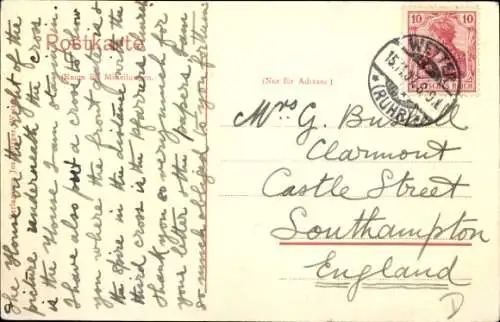 Postkarte
(Raum für Mitteilungen.)
(Nur für Adresse.)
10 10
WETTER
(RUHR)
The House on the right of the
picture underneath the cross
is the House I am staying in.
I have also put a cross to show
you where the front gate is &
the spire in the distance with
third cross is the Pfarrei Church
Thank you so very much for
your letter & the papers I am
so much obliged to you for them
Mrs G. Bussell
Clarmont
Castle Street
Southampton
England
D